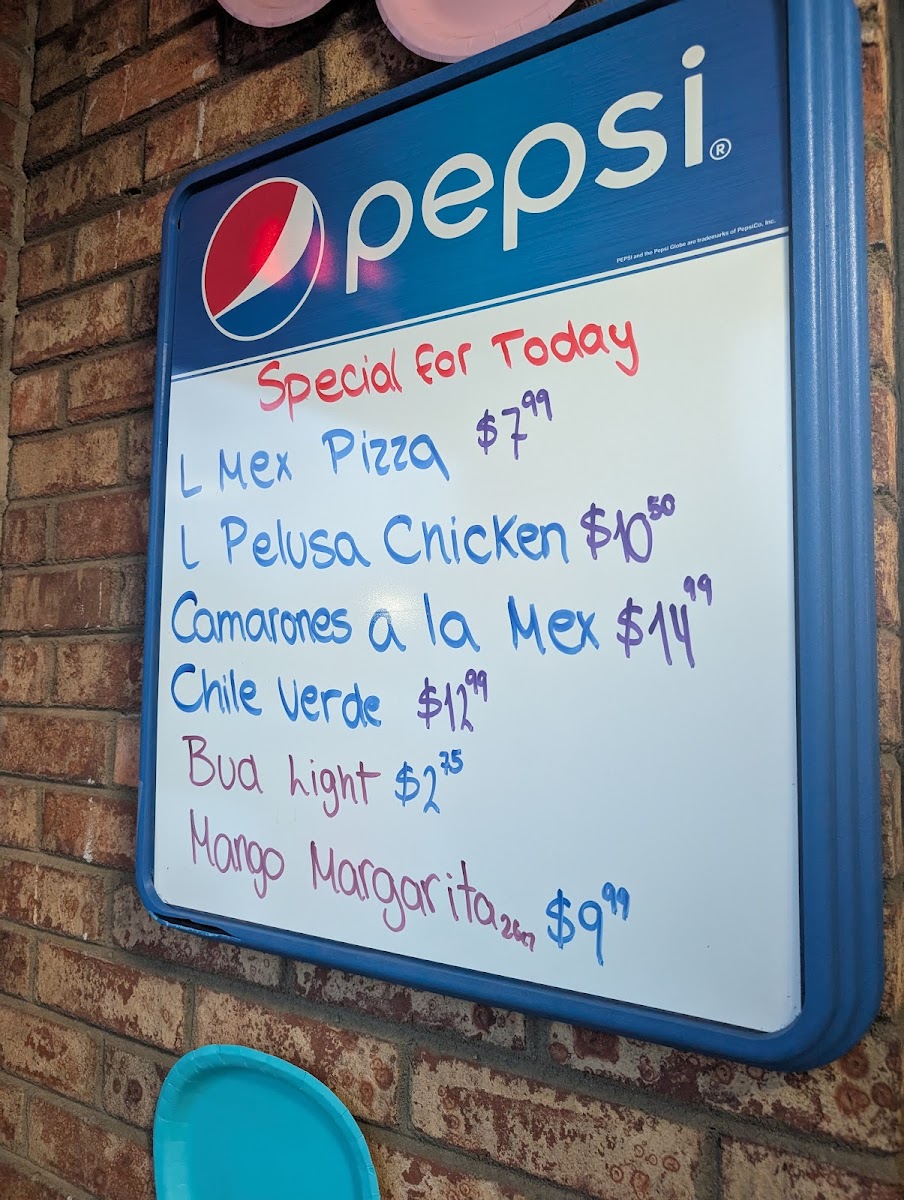 pepsi®
PEPSI and the Pepsi Globe are trademarks of PepsiCo, Inc.
Special for Today
L Mex Pizza $7.99
L Pelusa Chicken $10.50
Camarones a la Mex $14.99
Chile Verde $12.99
Bud Light $2.75
Mango Margarita $9.99